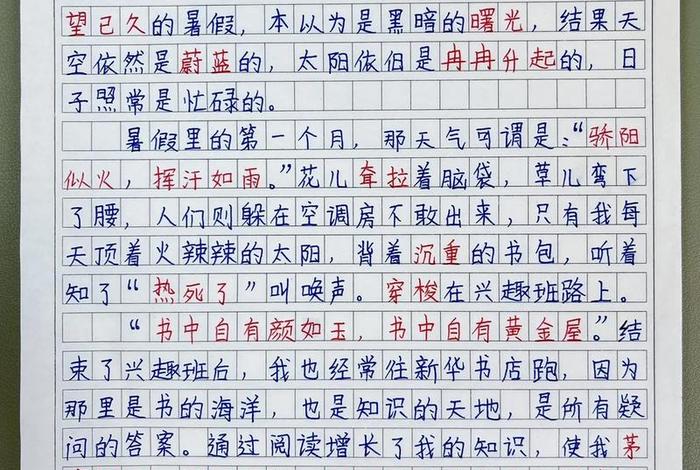 望已久的暑假，本以为是黑暗的曙光，结果天
空依然是蔚蓝的，太阳依旧是冉冉升起的，日
子照常是忙碌的。
暑假里的第一个月，那天气可谓是：“骄阳
似火，挥汗如雨。”花儿耷拉着脑袋，草儿弯下
了腰，人们则躲在空调房不敢出来，只有我每
天顶着火辣辣的太阳，背着沉重的书包，听着
知了“热死了”叫唤声。穿梭在兴趣班路上。
“书中自有颜如玉，书中自有黄金屋。”结
束了兴趣班后，我也经常往新华书店跑，因为
那里是书的海洋，也是知识的天地，是所有疑
问的答案。通过阅读增长了我的知识，使我茅